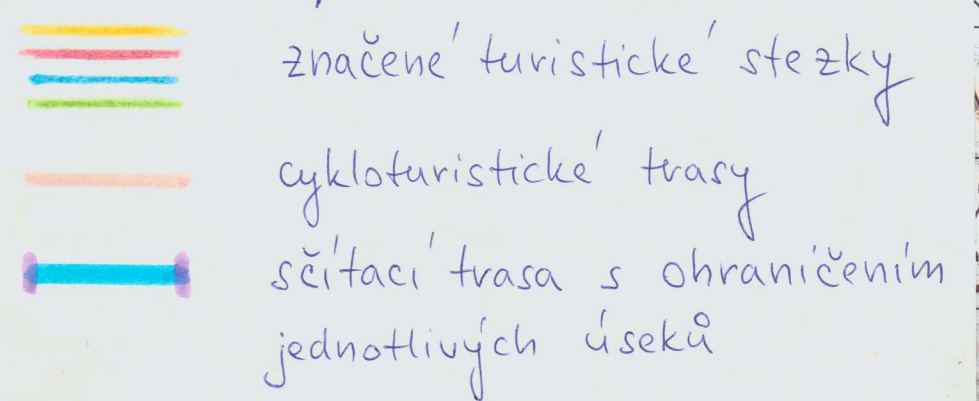 značené turistické stezky
cykloturistické trasy
sčítací trasa s ohraničením
jednotlivých úseků